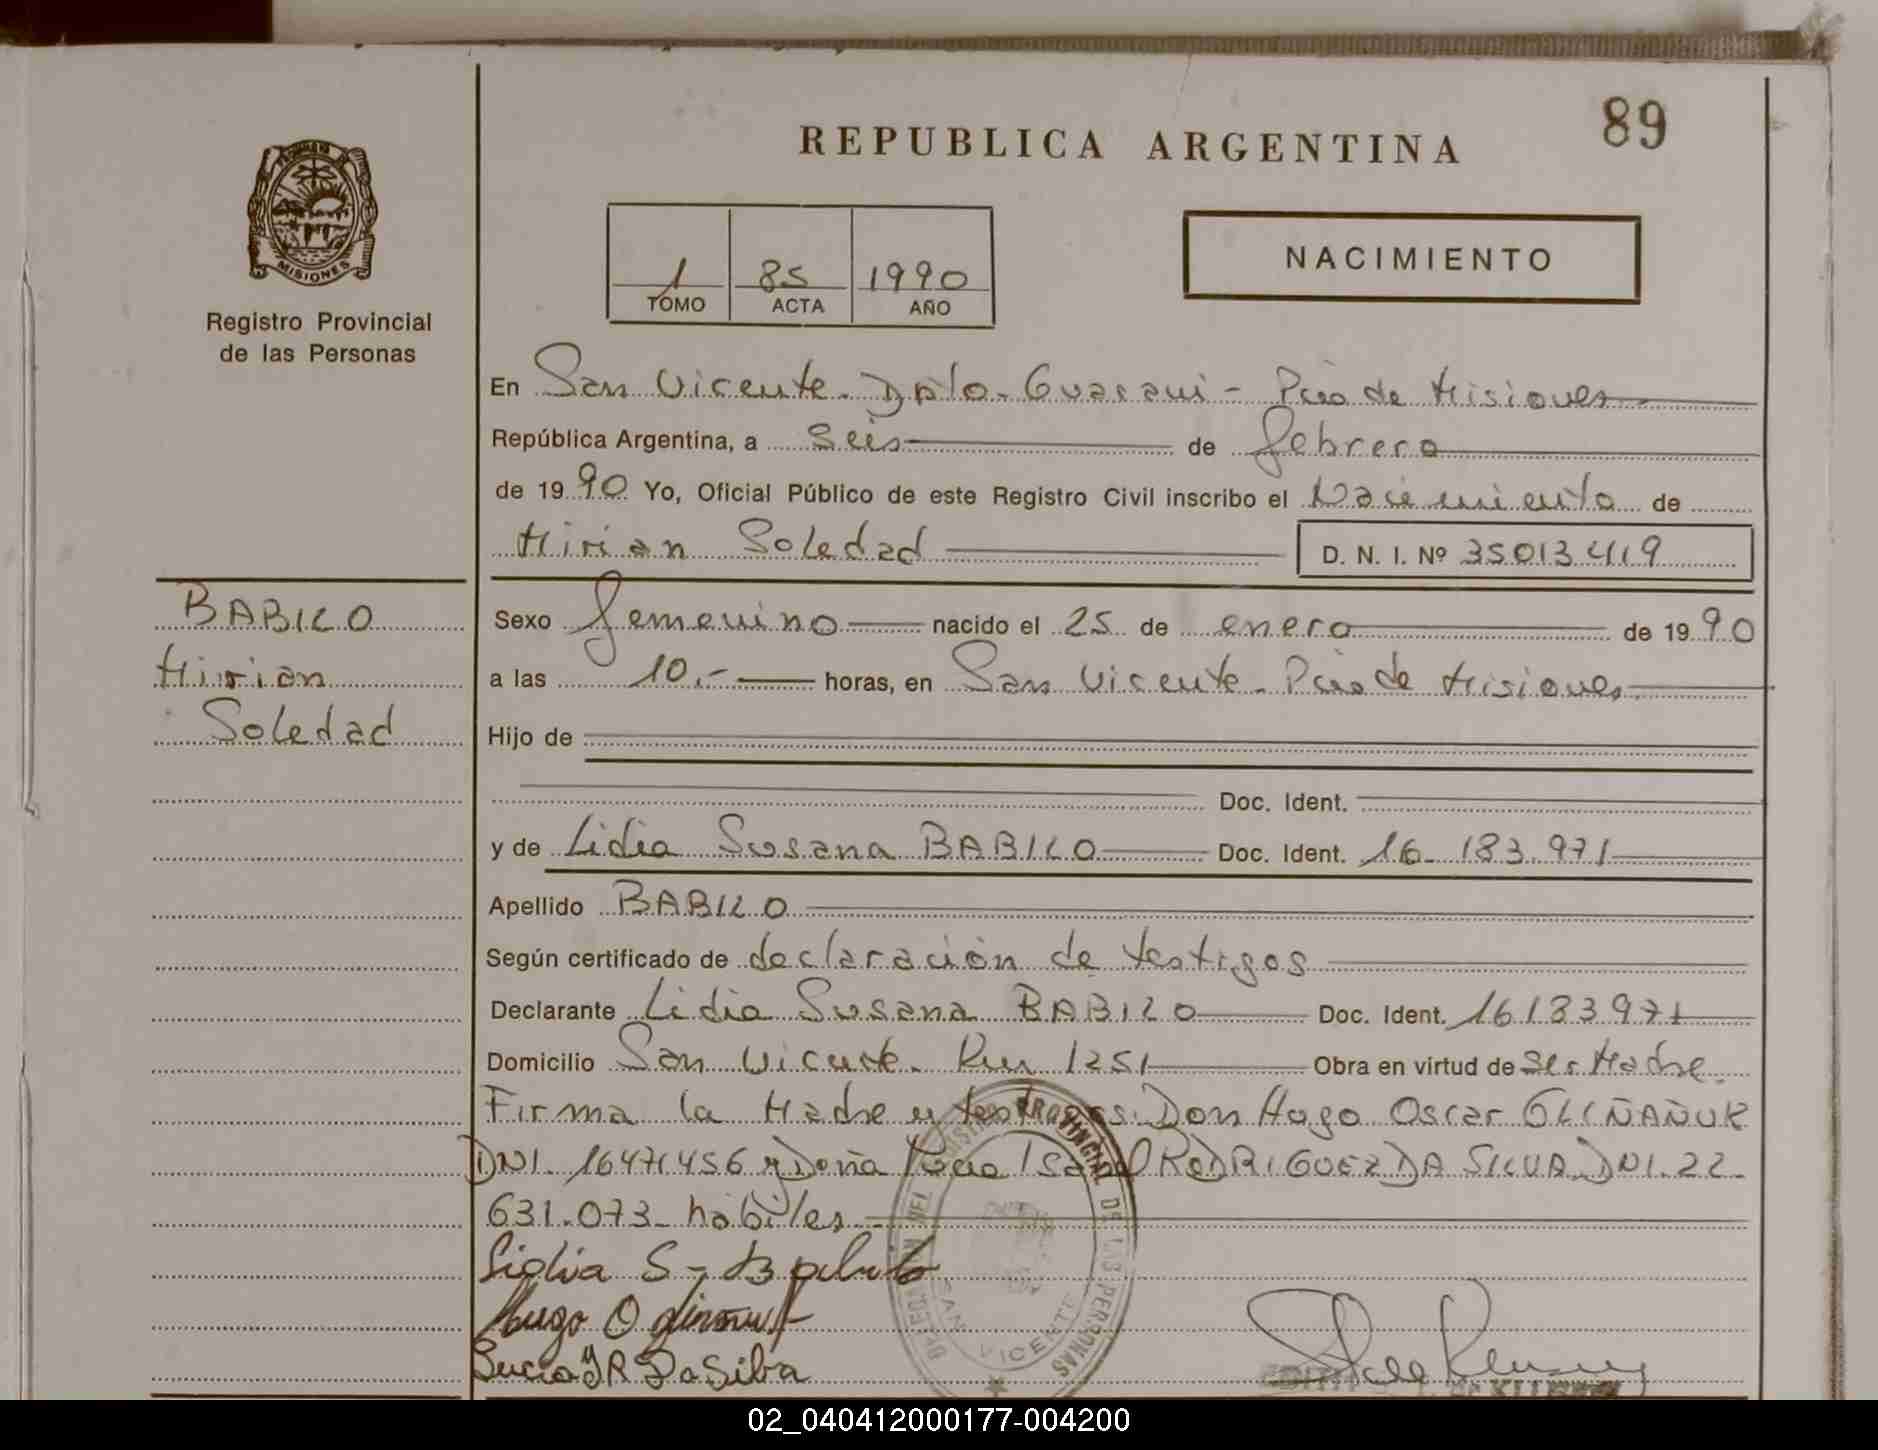 89
REPUBLICA ARGENTINA
MISIONES
Registro Provincial
de las Personas
1 85 1990
TOMO ACTA AÑO
NACIMIENTO
En San Vicente. Dpto. Guarani - Pcia de Misiones
República Argentina, a seis de febrero
de 1990 Yo, Oficial Público de este Registro Civil inscribo el Nacimiento de
Mirian Soledad D. N. I. Nº 35013419
BABILO
Mirian
Soledad
Sexo femenino nacido el 25 de enero de 1990
a las 10.- horas, en San Vicente. Pcia de Misiones
Hijo de
Doc. Ident.
y de Lidia Susana BABILO Doc. Ident. 16.183.971
Apellido BABILO
Según certificado de declaración de testigos
Declarante Lidia Susana BABILO Doc. Ident. 16183971
Domicilio San Vicente. Km 1251 Obra en virtud de ser Madre.
Firma la Madre y testigos: Don Hugo Oscar GLIÑAÑUK
DNI. 16471456 y Doña Lucia Isabel RODRIGUEZ DA SILVA. DNI. 22.
631.073- hábiles.-
Lidia S - Babilo
Hugo O
Lucia I R Da Silva
DELEGACION DEL REGISTRO PROVINCIAL DE LAS PERSONAS
SAN VICENTE
02_040412000177-004200